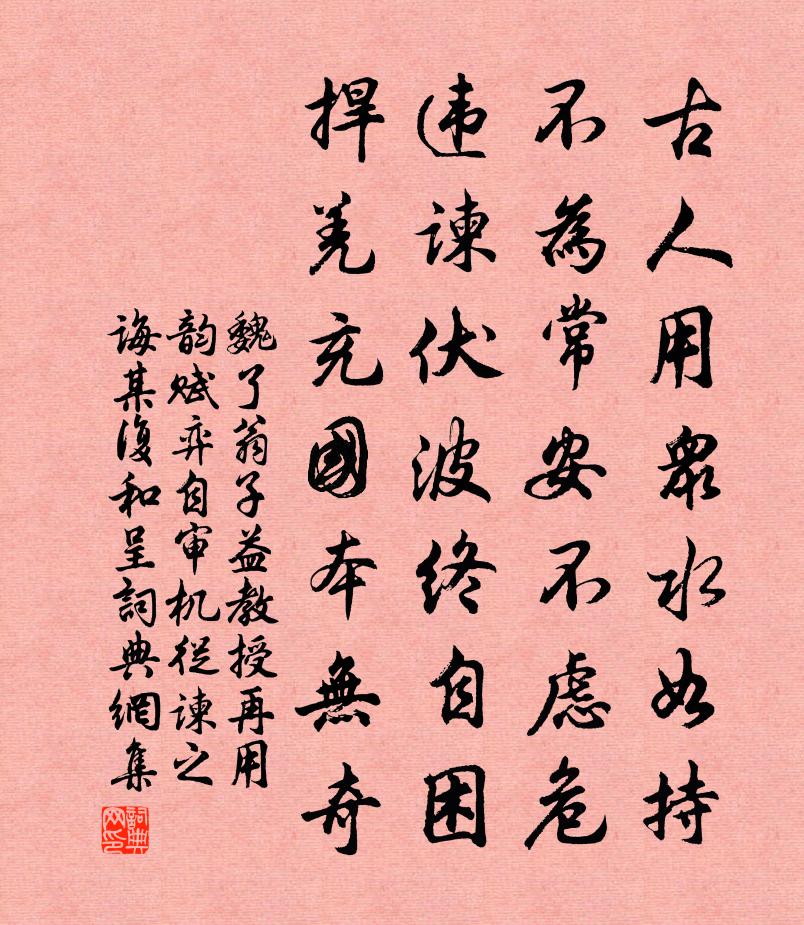 古人用眾水如持
不為常安不慮危
违諫伏波終自困
捍羌充國本無奇
魏了翁子益教授再用
韵赋弈自审机從諫之
诲某復和呈詞典網集
詞典网印